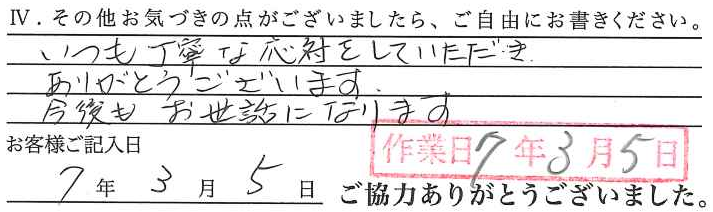 Ⅳ．その他お気づきの点がございましたら、ご自由にお書きください。
いつも丁寧な応対をしていただき
ありがとうございます.
今後もお世話になります
お客様ご記入日
作業日7年3月5日
7年3月5日
ご協力ありがとうございました。